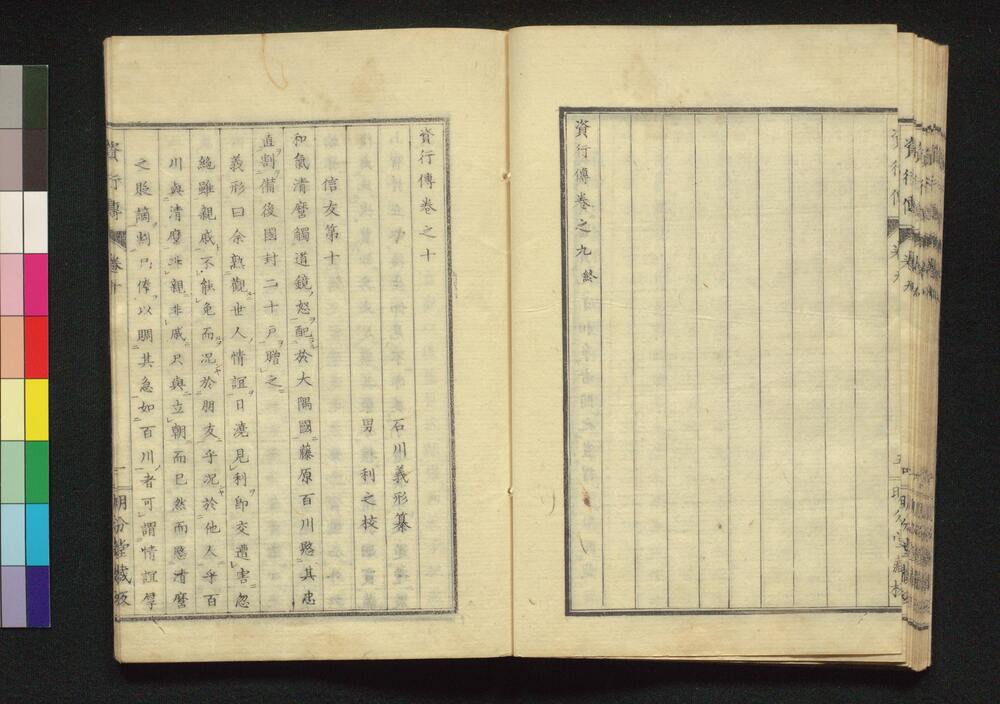 資行傳卷之九終
資行傳卷之十
石川義形纂
男 利之校
信友第十
和氣清麿觸道鏡怒配於大隅國藤原百川愍其忠
直割備後國封二十戶贈之
義形曰余熟觀世人情誼日澆見利即交遭害忽
絶雖親戚不能免而況於朋友乎況於他人乎百
川與清麿非親非戚只與立朝而已然而愍清麿
之貶謫割戶俸以賙其急如百川者可謂情誼厚
資行傳
卷十